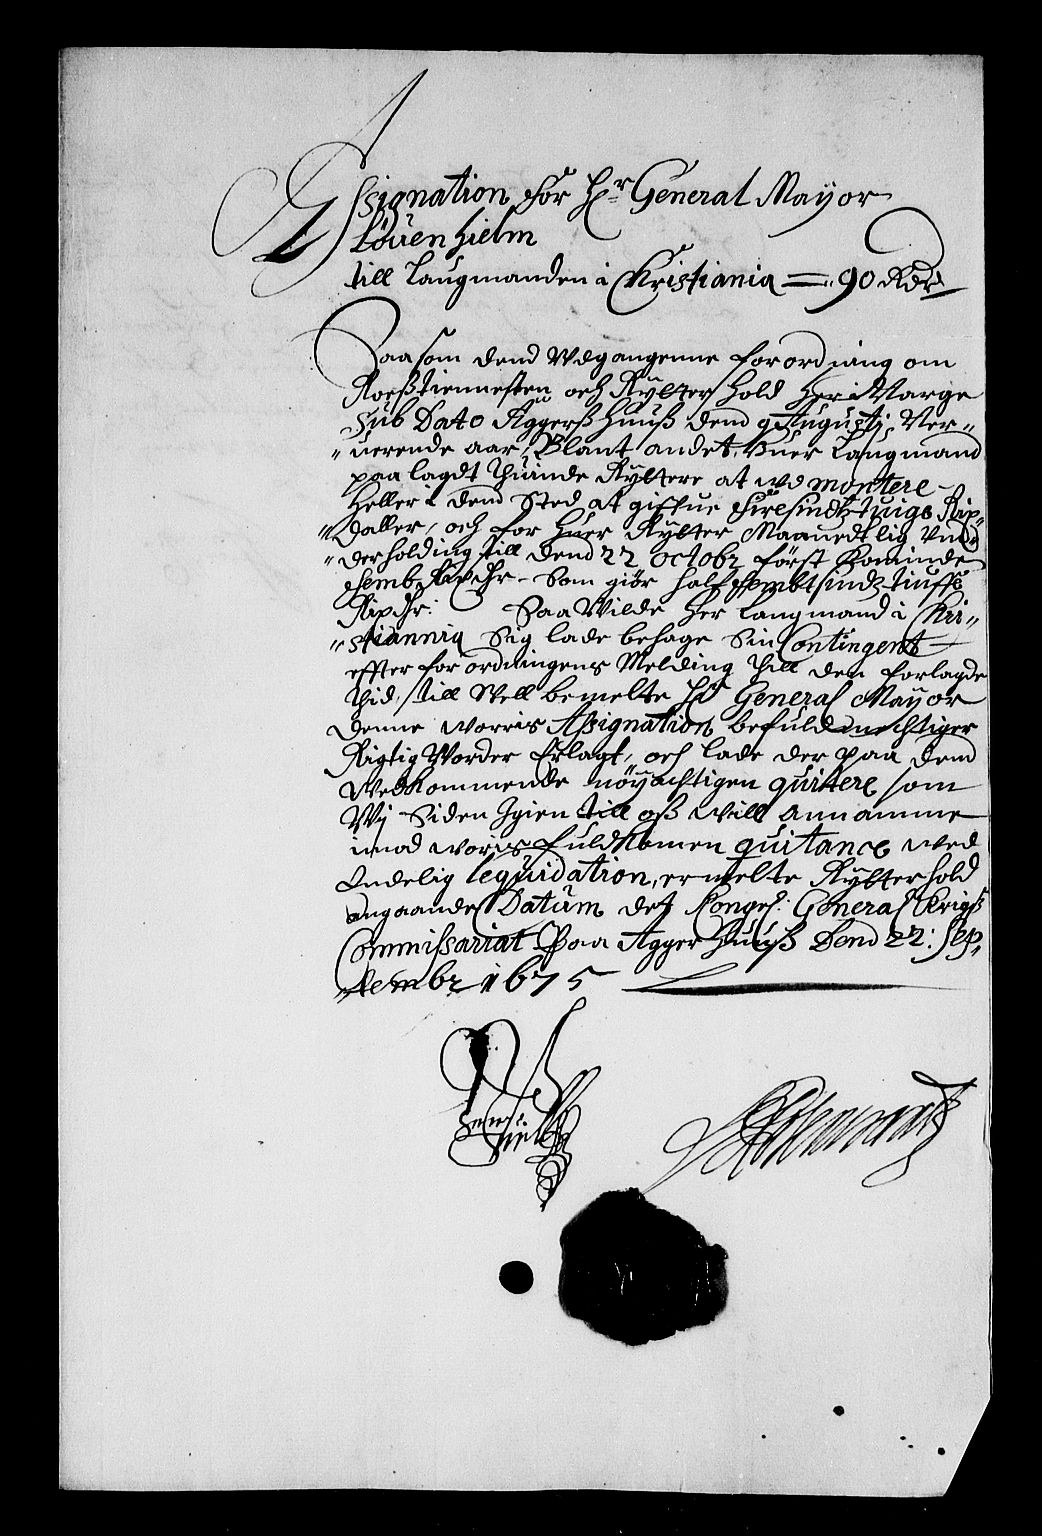 Assignation for Hr General Mayor
Löuenhielm
till Laugmanden i Christiania = 90 Rdr
Saasom dend Udgangenne forordning om
Rosstiennesten och Rytter hold her i Norge
Sub Dato Aggerss Huuss dend 9 Augusti Ner-
uerende aar, Blant andet, huer Laugmand
paalagdt Thuinde Ryttere at ud montere
Heller i dend Sted at giffue firesindtztuige Rix-
daller, och for huer Rytter Maanedtlig Und-
derholding till dend 22 octobr först Kominde
femb Rixdr. Som giör halffembtsindztiuffue
Rixdr: Saa Wilde her Laugmand i Chri-
stiannia Sig lade behage Sin Contingent
effter forordningens Melding till den forlagde
thid, till Well bemelte Hr General Mayor
denne worris Assignation befuldmechtiger
Rigtig Worder Erlagt, och lade der paa dend
Wedkommende nöyachtigen quitere som
Wy Siden Igien till oss will annamme
imod worris fuldkomen quitance wed
Endelig lequidation, ermelte Rytterhold
angaande Datum det Kongel: General Krigss
Commissariat Paa Agger Huuss Dend 22: Sep-
tembr 1675